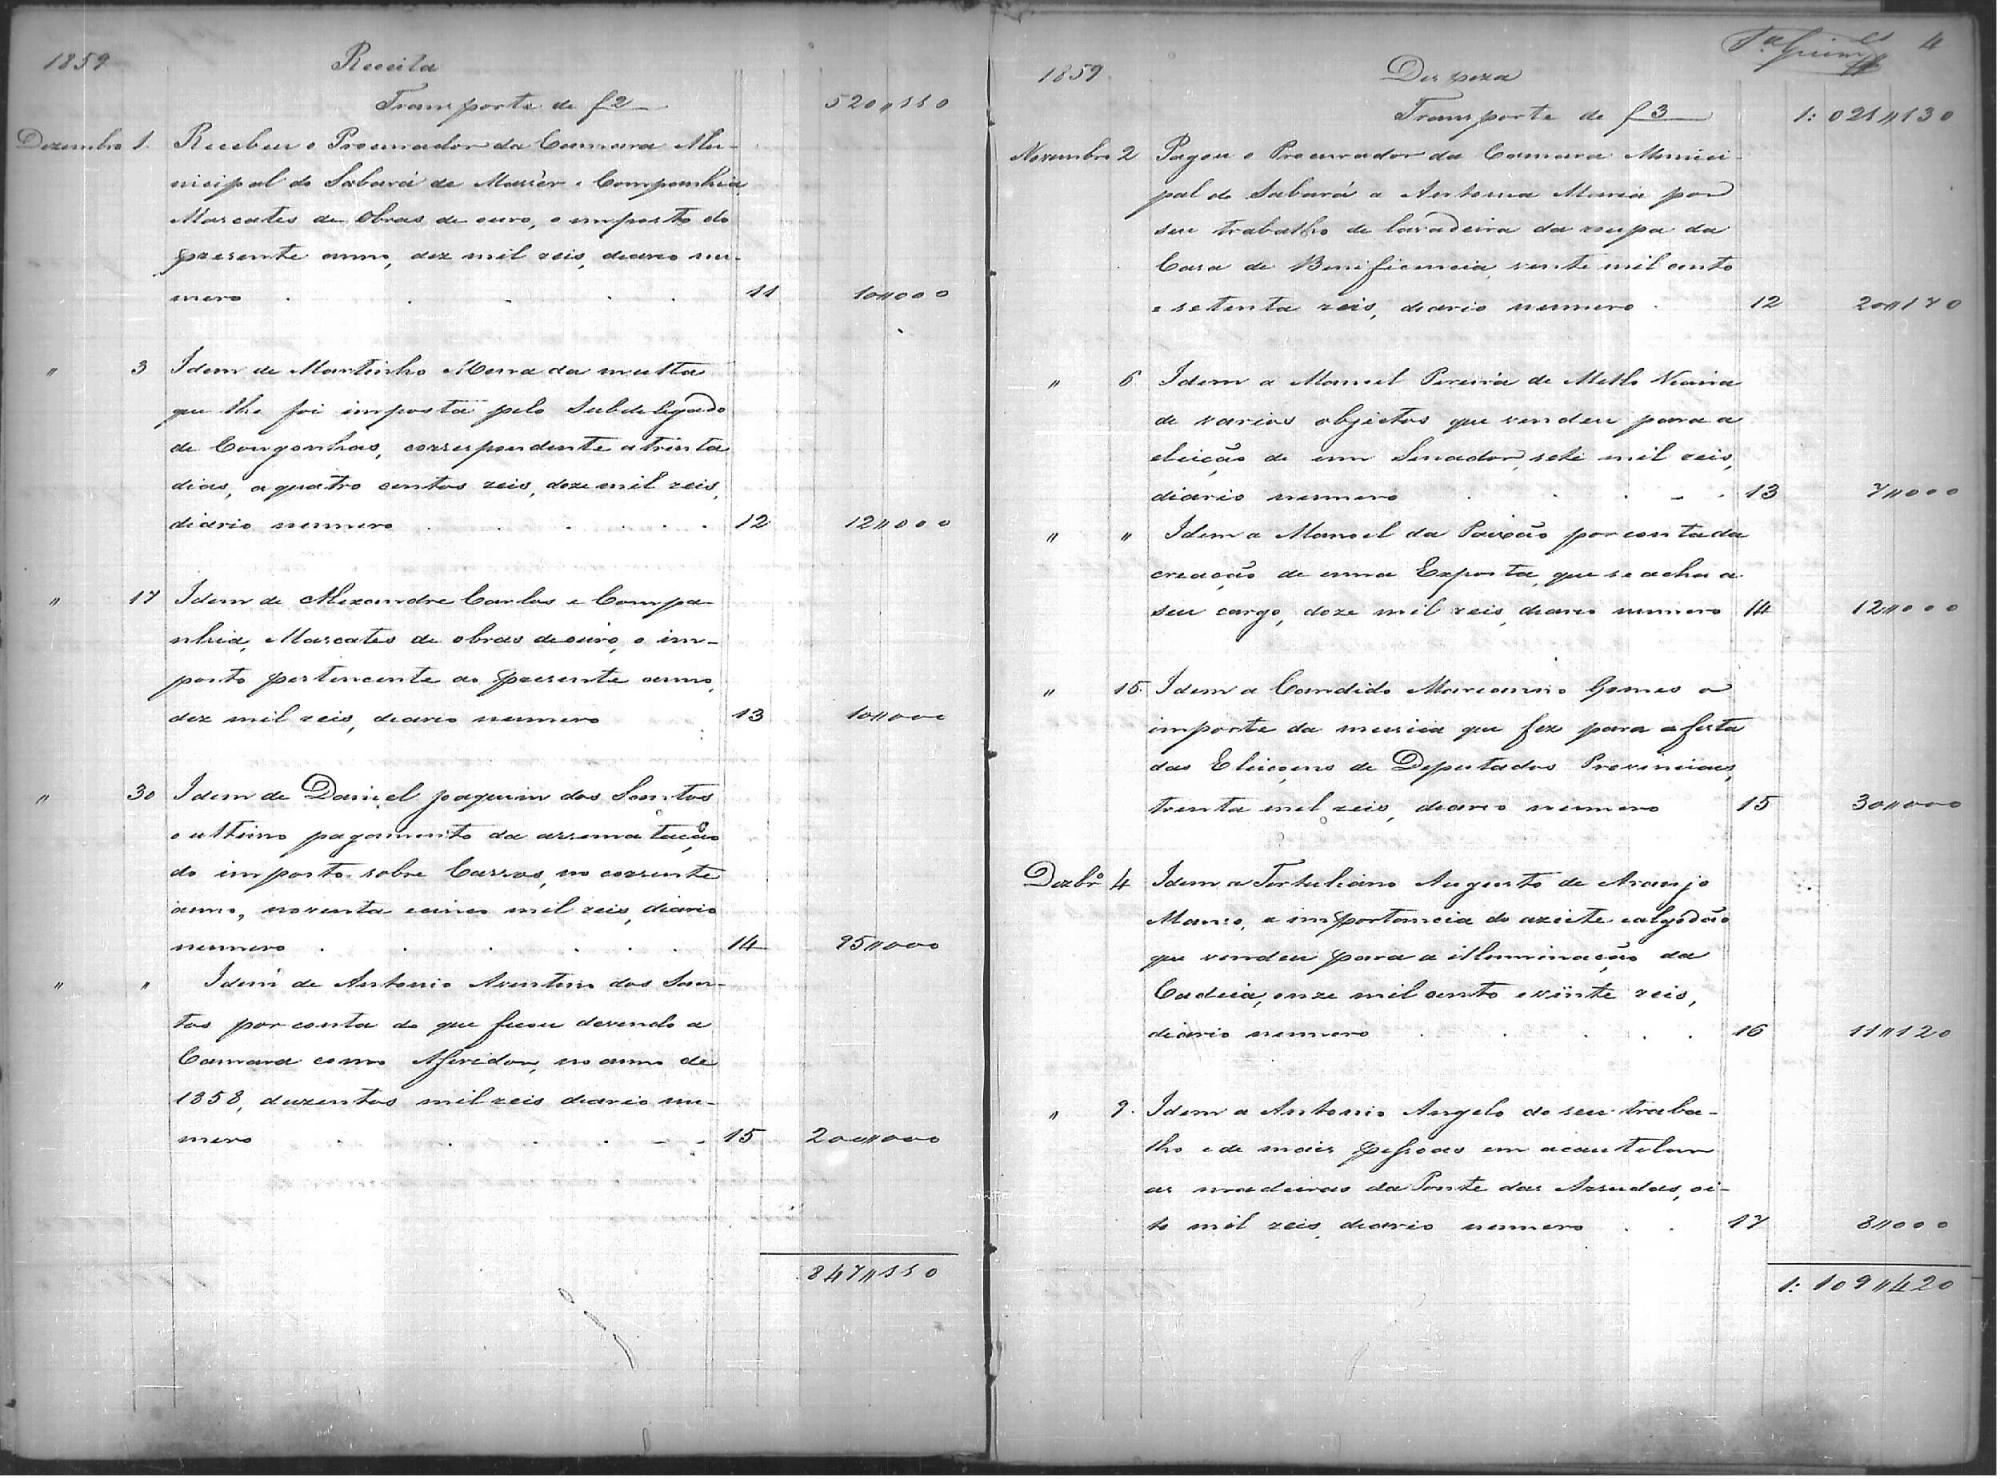 1859 Receita
Transporte de f 2 520,,550
Dezembro 1. Recebeu o Procurador da Camara Mu-
nicipal do Sabará de Massèr e Companhia
Mascates de Obras de ouro, o imposto do
presente anno, dez mil reis, diario nu-
mero . . . . 11 10,,000
" 3 Idem de Martinho Morra da multa
que lhe foi imposta pelo Subdelegado
de Congonhas, correspondente a trinta
dias, a quatro centos reis, doze mil reis,
diario numero . . . . . 12 12,,000
" 17 Idem de Alexandre Carlos e Compa-
nhia, Mascates de obras de ouro, o im-
posto pertencente ao presente anno,
dez mil reis, diario numero 13 10,,000
" 30 Idem de Daniel Joaquim dos Santos
o ultimo pagamento da arrematação
do imposto sobre Carros, no corrente
anno, noventa e cinco mil reis, diario
numero . . . . . 14 95,,000
" " Idem de Antonio Aventino dos San-
tos por conta do que ficou devendo a
Camara como Aferidor, no anno de
1858, duzentos mil reis diario nu-
mero . . . . - - 15 200,,000
847,,550
4
1859. Despeza
Transporte de f 3 1: 021,,130
Novembro 2 Pagou o Procurador da Camara Munici-
pal do Sabará a Antonia Maria por
seu trabalho de lavadeira da roupa da
Casa de Benificencia, vinte mil cento
e setenta reis, diario numero . 12 20,,170
" 6 Idem a Manoel Pereira de Mello Vianna
de varios objectos que vendeu para a
eleição de um Senador, sete mil reis,
diario numero . . . - . 13 7,,000
" " Idem a Manoel da Paixão por conta da
creação de uma Exposta, que se acha a
seu cargo, doze mil reis, diario numero 14 12,,000
" 15. Idem a Candido Marcianno Gomes o
importe da musica que fez para a festa
das Eleiçoens de Deputados Provinciaes,
trinta mil reis, diario numero 15 30,,000
Dezbrº 4 Idem a Tertuliano Augusto de Araujo
Manso, a importancia do azeite e algodão
que vendeu para a illuminação da
Cadeia, onze mil cento e vinte reis,
diario numero . . . . 16 11,,120
" 9. Idem a Antonio Angelo do seu traba-
lho e de mais pessoas em acautelar
as madeiras da Ponte das Arrudas, oi-
to mil reis, diario numero . . 17 8,,000
1: 109,,420